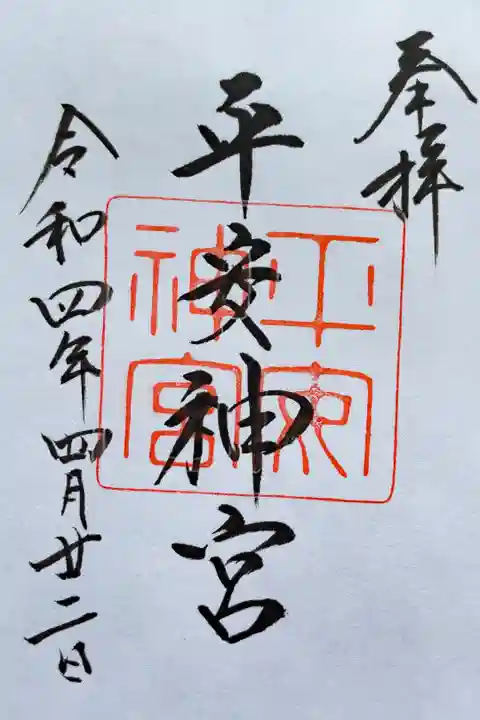 奉拝
平安神宮
平安神宮
令和四年四月廿二日